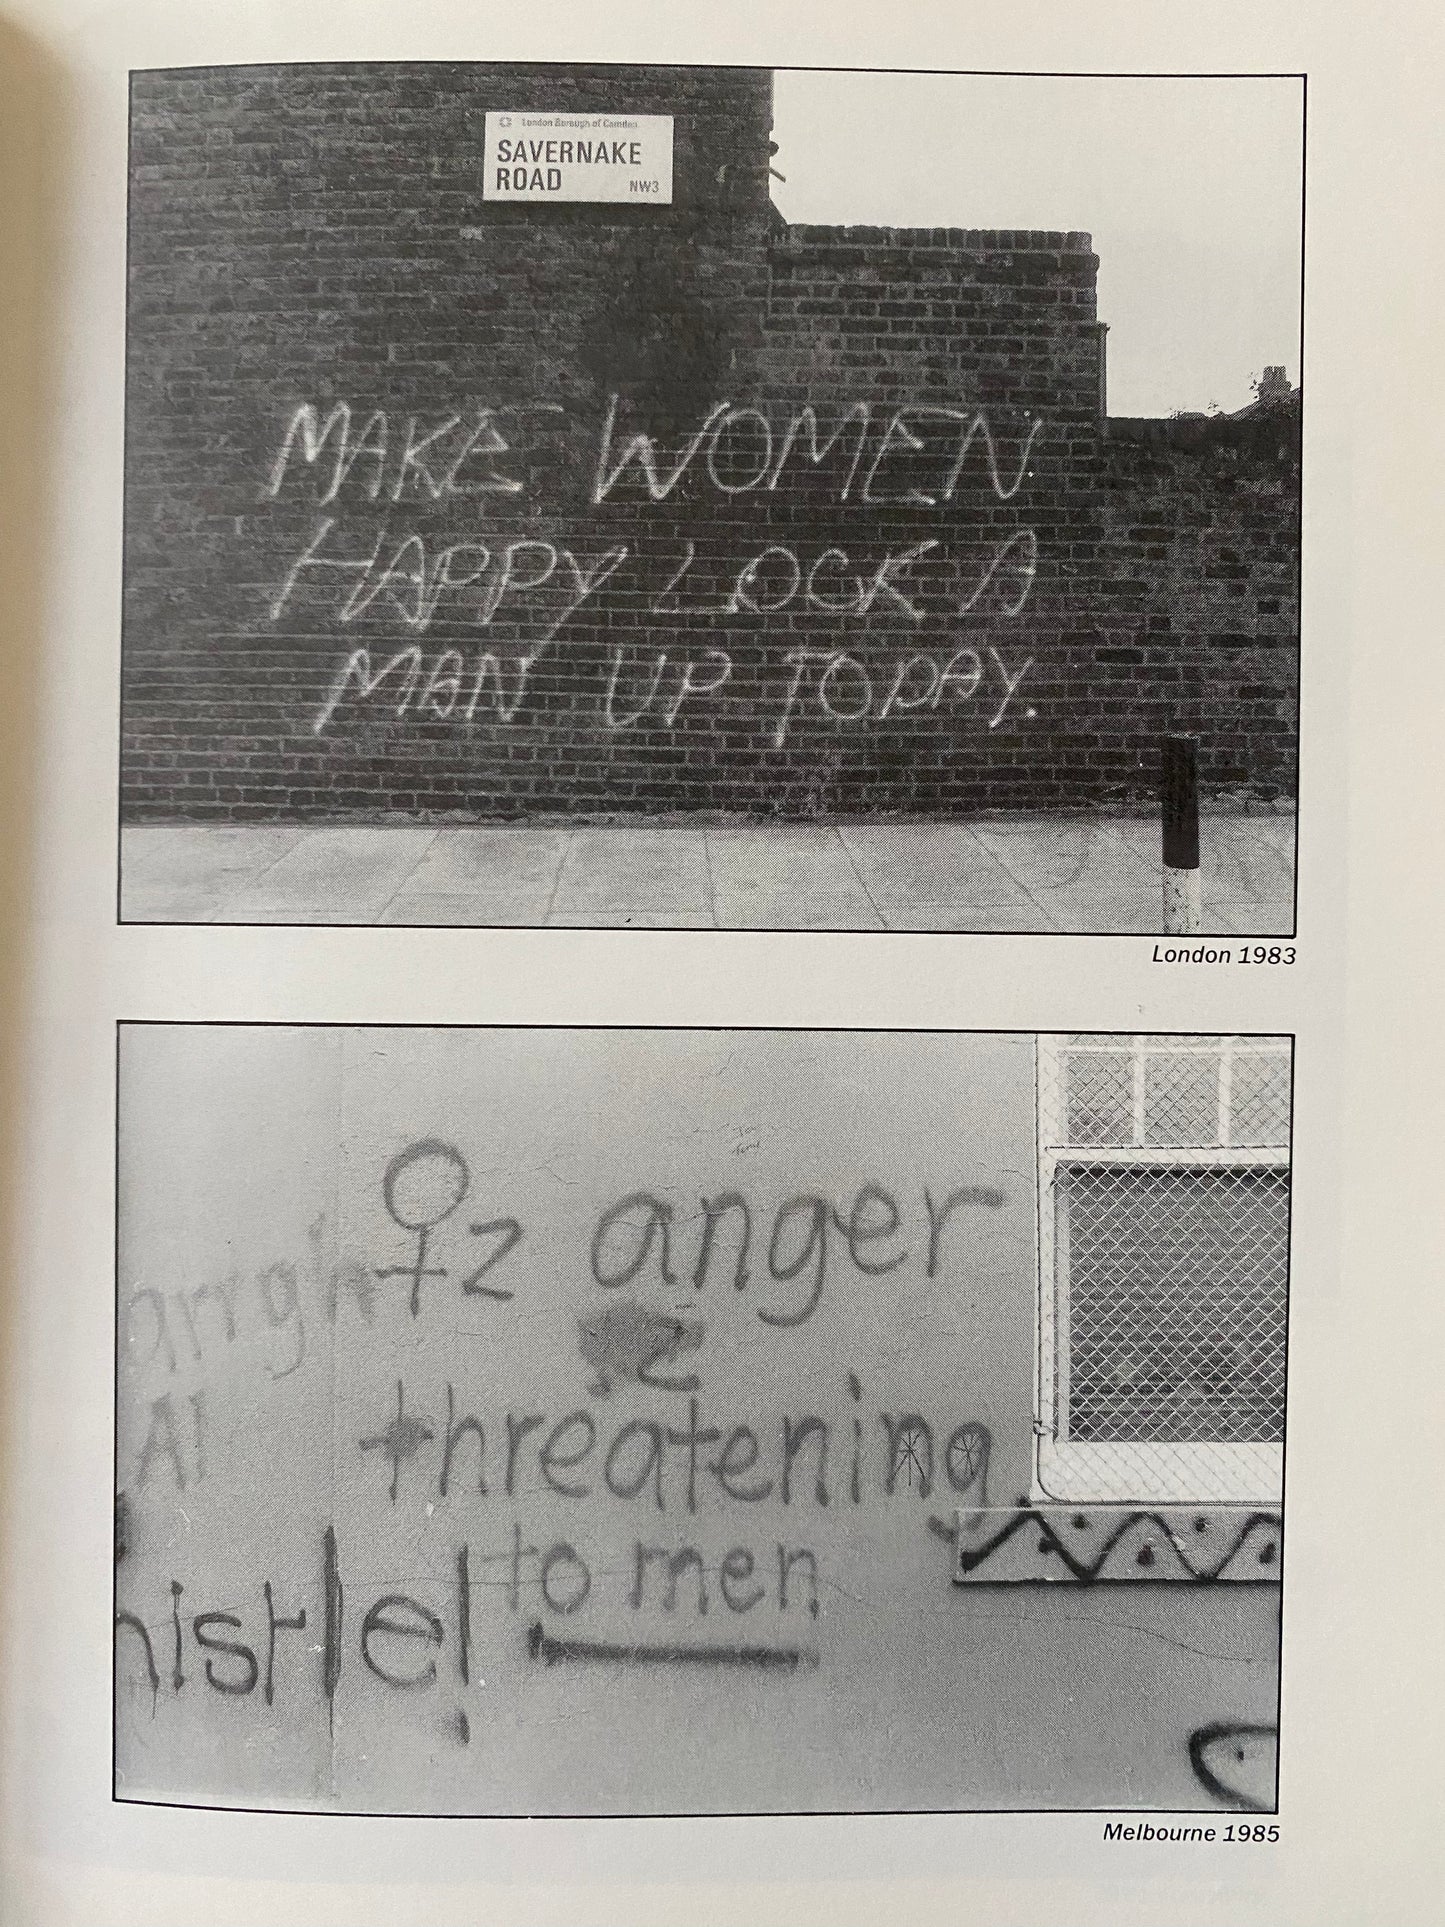 London Borough of Camden
SAVERNAKE
ROAD NW3
MAKE WOMEN
HAPPY LOCK A
MAN UP TODAY.
London 1983
♀z anger
iz
threatening
to men
Melbourne 1985